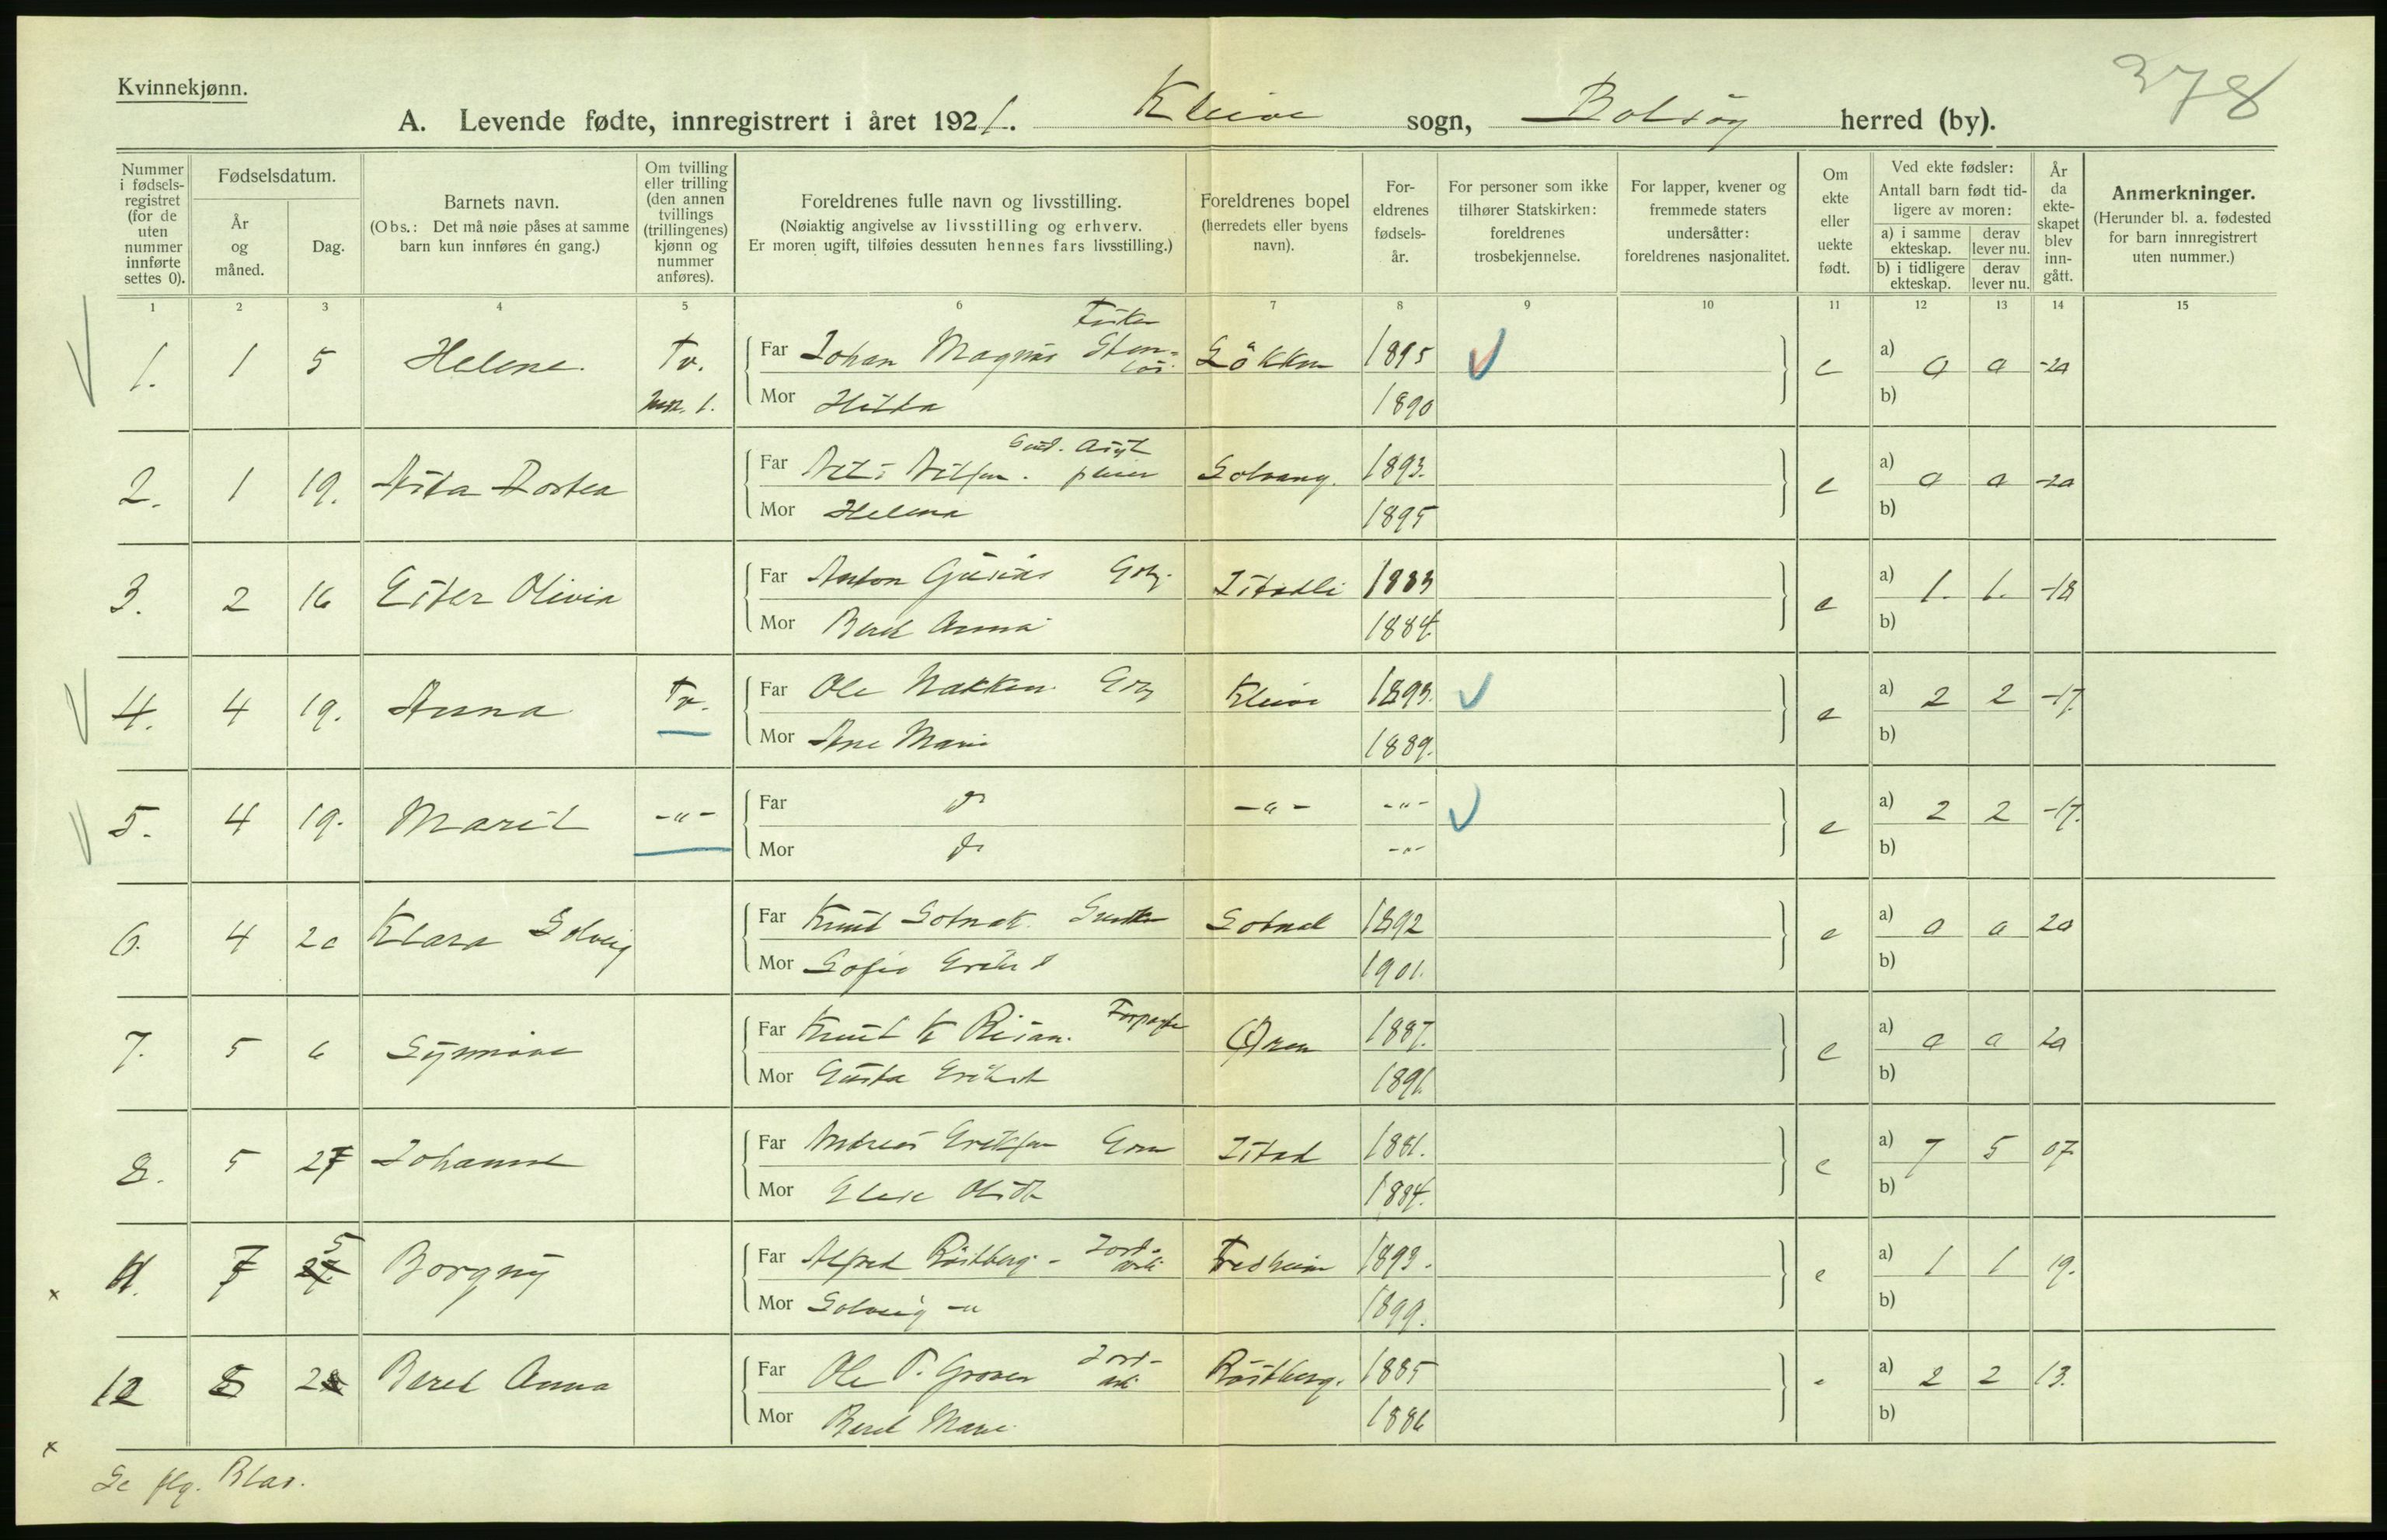 378
Kvinnekjønn.
A. Levende fødte, innregistrert i året 1921. Kleive sogn, Bolsøy herred (by).
Nummer i fødsels-registret (for de uten nummer innførte settes 0).
Fødselsdatum.
År og måned.
Dag.
Barnets navn.
(Obs.: Det må nøie påses at samme barn kun innføres én gang.)
Om tvilling eller trilling (den annen tvillings (trillingenes) kjønn og nummer anføres).
Foreldrenes fulle navn og livsstilling.
(Nøiaktig angivelse av livsstilling og erhverv.
Er moren ugift, tilføies dessuten hennes fars livsstilling.)
Foreldrenes bopel (herredets eller byens navn).
For-eldrenes fødsels-år.
For personer som ikke tilhører Statskirken: foreldrenes trosbekjennelse.
For lapper, kvener og fremmede staters undersåtter: foreldrenes nasjonalitet.
Om ekte eller uekte født.
Ved ekte fødsler:
Antall barn født tid-ligere av moren:
a) i samme ekteskap.
derav lever nu.
b) i tidligere ekteskap.
derav lever nu.
År da ekte-skapet blev inn-gått.
Anmerkninger.
(Herunder bl. a. fødested for barn innregistrert uten nummer.)
1 2 3 4 5 6 7 8 9 10 11 12 13 14 15
1. 1 5 Helene. Tv. Far Johan Magnus 1895 e a) 0 0 -20
1. Mor Hilda 1890 b)
2. 1 19. Far Nils Nilsen. Solvang. 1893. e a) 0 0 -20
Mor Helena 1895 b)
3. 2 16 Ester Olivia Far Anton 1883 e a) 1. 1. -18
Mor Beret Anna 1884. b)
4. 4 19. Anna Tv. Far Ole Nakken. Kleive 1893. e a) 2 2 -17.
Mor Ane Marie 1889. b)
5. 4 19. Marit -"- Far do -"- -"- e a) 2 2 -17.
Mor do -"- b)
6. 4 20 Klara Solveig Far Knut 1892 e a) 0 0 20
Mor Sofie 1901. b)
7. 5 6 Synnøve Far Knut K 1887. e a) 0 0 20
Mor Gusta 1891. b)
8. 5 27 Johanne Far Andreas Eriksen 1881. e a) 7 5 07
Mor 1884. b)
11. 7 5 Borgny Far Alfred Röstberg - Jord- Fredheim 1893. e a) 1 1 19.
Mor Solveig -" 1899. b)
12 8 Beret Anna Far Ole P. Jord- Röstberg. 1885 a) 2 2 13.
Mor Beret Marie 1886 b)
Se flg. Blad.